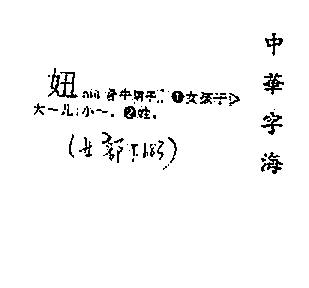 中華字海
妞 niū 音牛阴平 ❶女孩子▷
大~儿|小~。❷姓。
(女部 P.683)